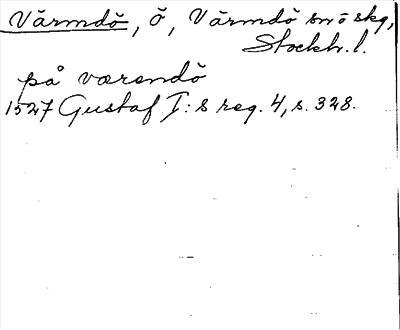 Värmdö, ö, Värmdö snö skg,
Stockh. l.
på værendö
1527 Gustaf I:s reg. 4, s. 328.